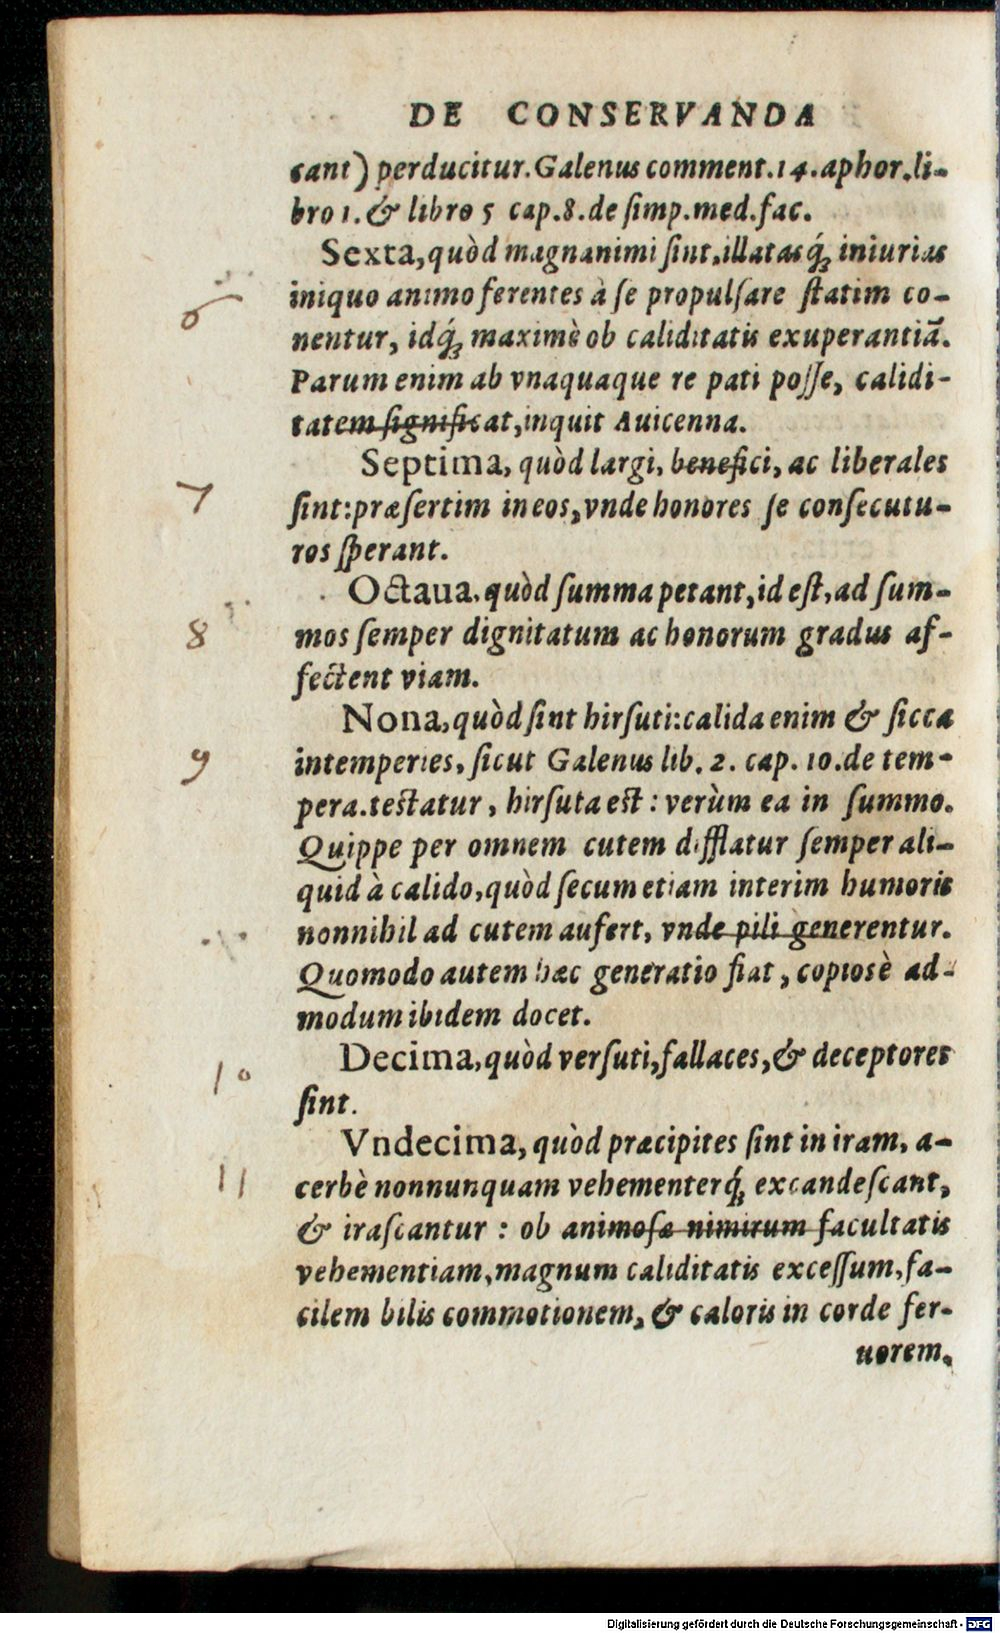 DE CONSERVANDA
cant) perducitur. Galenus comment. 14. aphor. li-
bro 1. & libro 5 cap. 8. de ſimp. med. fac.
Sexta, quòd magnanimi ſint, illatasq́; iniurias
6
iniquo animo ferentes à ſe propulſare ſtatim co-
nentur, idq́; maximè ob caliditatis exuperantiã.
Parum enim ab vnaquaque re pati poſſe, calidi-
tatem ſignificat, inquit Auicenna.
Septima, quòd largi, benefici, ac liberales
7
ſint: præſertim in eos, vnde honores ſe conſecutu-
ros ſperant.
Octaua. quòd ſumma petant, id eſt, ad ſum-
8
mos ſemper dignitatum ac honorum gradus af-
fectent viam.
Nona, quòd ſint hirſuti: calida enim & ſicca
9
intemperies, ſicut Galenus lib. 2. cap. 10. de tem-
pera. teſtatur, hirſuta eſt: verùm ea in ſummo.
Quippe per omnem cutem difflatur ſemper ali-
quid à calido, quòd ſecum etiam interim humoris
nonnihil ad cutem aufert, vnde pili generentur.
Quomodo autem hæc generatio fiat, copiosè ad-
modum ibidem docet.
Decima, quòd verſuti, fallaces, & deceptores
10
ſint.
Vndecima, quòd præcipites ſint in iram, a-
11
cerbè nonnunquam vehementerq́; excandeſcant,
& iraſcantur: ob animoſæ nimirum facultatis
vehementiam, magnum caliditatis exceſſum, fa-
cilem bilis commotionem, & caloris in corde fer-
uorem.
Digitalisierung gefördert durch die Deutsche Forschungsgemeinschaft - DFG